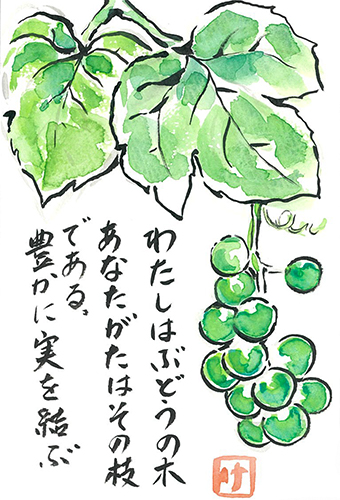 わたしはぶどうの木
あなたがたはその枝
である。
豊かに実を結ぶ
け